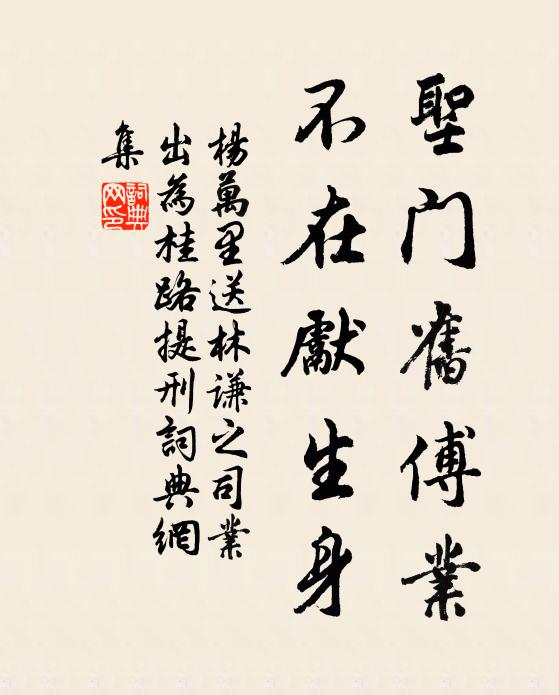 聖門舊傅業
不在獻生身
楊萬里送林謙之司業
出為桂路提刑詞典網
集
詞典网印